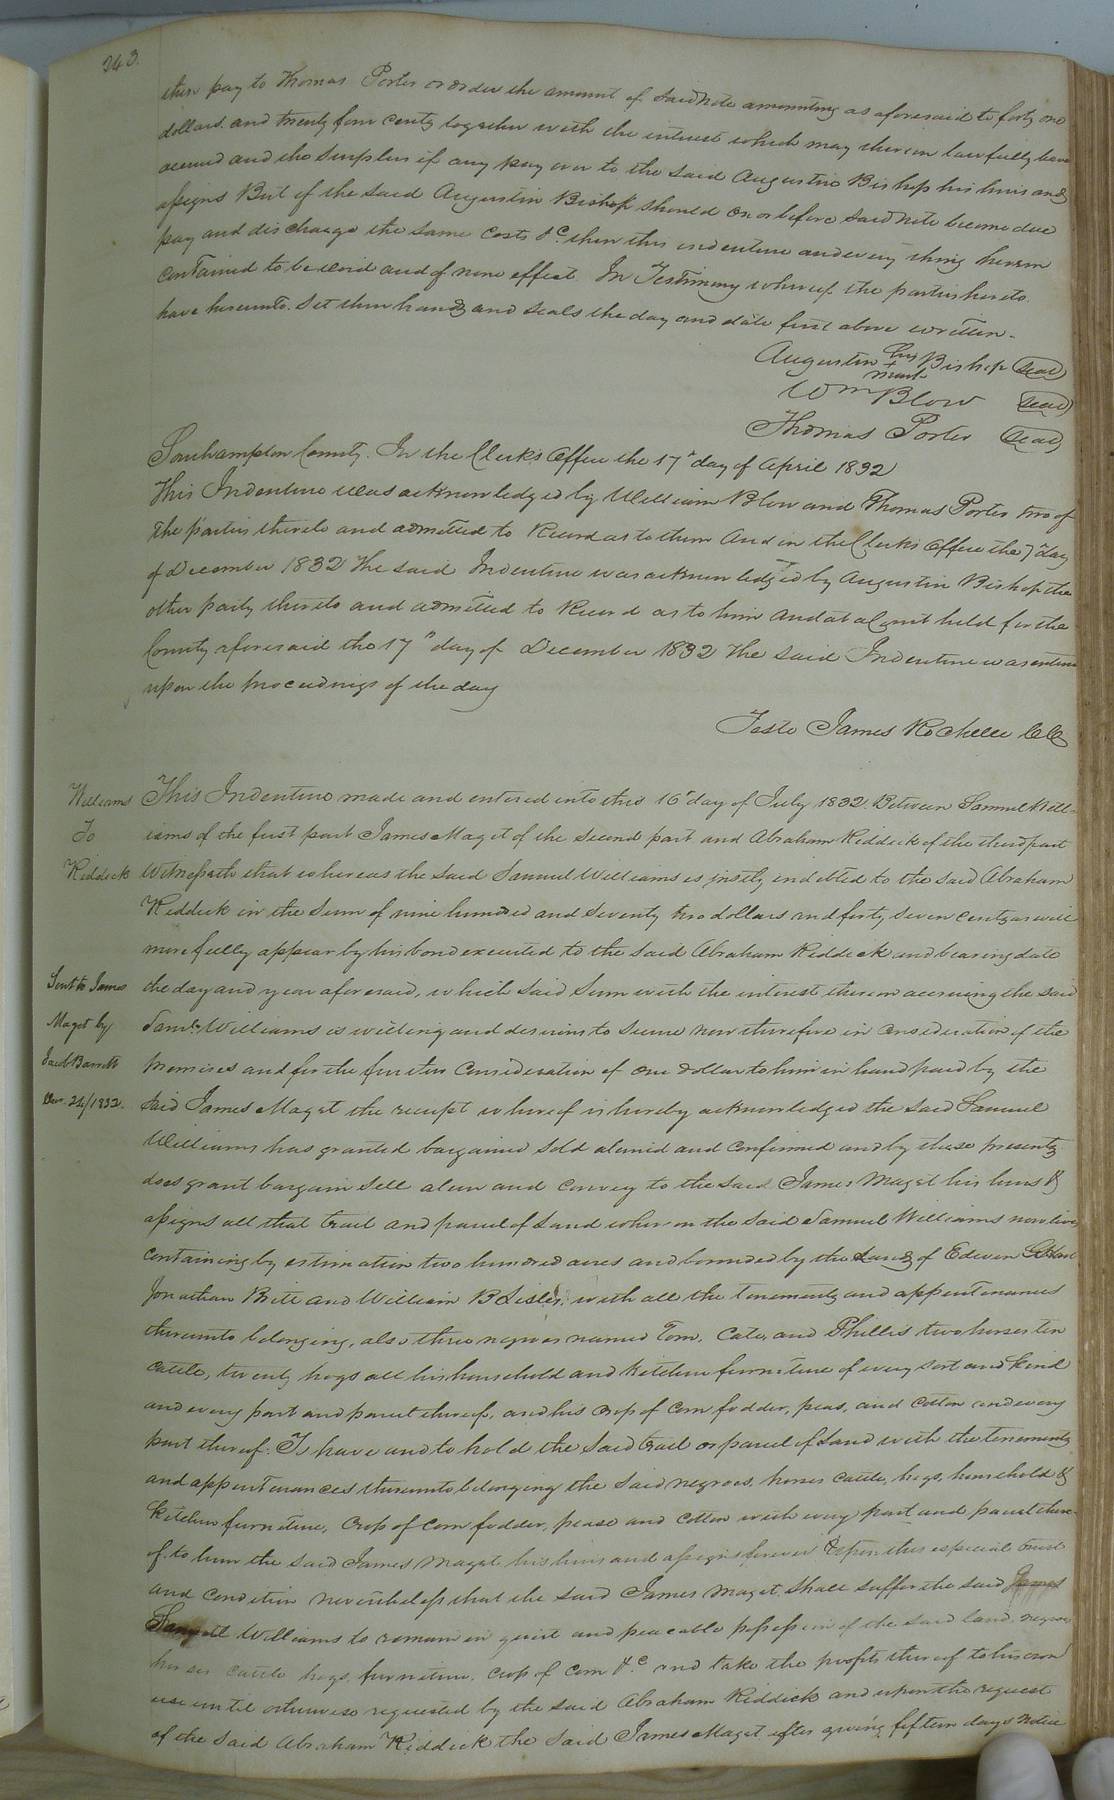 343.
then pay to Thomas Porter or order the amount of said note amounting as aforesaid to forty one
dollars and twenty four cents together with the interest which may thereon lawfully have
accrued and the surplus if any pay over to the said Augustin Bishop his heirs and
assigns But if the said Augustin Bishop should on or before said note become due
pay and discharge the same costs &c. then this indenture and every thing herein
contained to be void and of none effect. In Testimony whereof the parties hereto
have hereunto set their hands and seals the day and date first above written.
his
Augustin + Bishop (Seal)
mark
Wm Blow (Seal)
Thomas Porter (Seal)
Southampton County. In the Clerks Office the 17th day of April 1832
This Indenture was acknowledged by William Blow and Thomas Porter two of
the parties thereto and admitted to Record as to them And in the Clerks Office the 7th day
of December 1832 The said Indenture was acknowledged by Augustin Bishop the
other party thereto and admitted to Record as to him And at a Court held for the
County aforesaid the 17th day of December 1832 The said Indenture was entered
upon the proceedings of the day
Teste James Rochelle CC
Williams
To
Riddick
This Indenture made and entered into this 16th day of July 1832 Between Samuel Will-
iams of the first part James Maget of the Second part and Abraham Riddick of the third part
Witnesseth that whereas the said Samuel Williams is justly indebted to the said Abraham
Riddick in the Sum of nine hundred and seventy two dollars and forty seven cents as will
more fully appear by his bond executed to the said Abraham Riddick and bearing date
Sent to James
Maget by
Jacob Barrett
Dec. 24/1832.
the day and year aforesaid, which said Sum with the interest thereon accruing the said
Saml. Williams is willing and desirous to Secure now therefore in consideration of the
premises and for the further consideration of one dollar to him in hand paid by the
said James Maget the receipt whereof is hereby acknowledged the said Samuel
Williams has granted bargained sold aliened and confirmed and by these presents
does grant bargain sell alien and convey to the said James Maget his heirs &
assigns all that tract and parcel of Land whereon the said Samuel Williams now lives
containing by estimation two hundred acres and bounded by the Lands of Edwin
Jonathan Britt and William B Lisle, with all the tenements and appurtenances
thereunto belonging, also three negroes named Tom, Cate, and Phillis two horses ten
cattle, twenty hogs all his household and kitchen furniture of every sort and kind
and every part and parcel thereof, and his crop of corn fodder, peas, and cotton and every
part thereof: To have and to hold the said tract or parcel of Land with the tenements
and appurtenances thereunto belonging the said negroes, horses cattle, hogs, household &
kitchen furniture, crop of corn fodder, pease and cotton with every part and parcel there-
of, to him the said James Maget his heirs and assigns forever Upon this especial trust
and condition nevertheless that the said James Maget Shall suffer the said James
Samuel Williams to remain in quiet and peaceable possession of the said land negroes
horses cattle hogs, furniture, crop of corn &c. and take the profits thereof to his own
use until otherwise requested by the said Abraham Riddick and upon the request
of the said Abraham Riddick the said James Maget after giving fifteen days notice